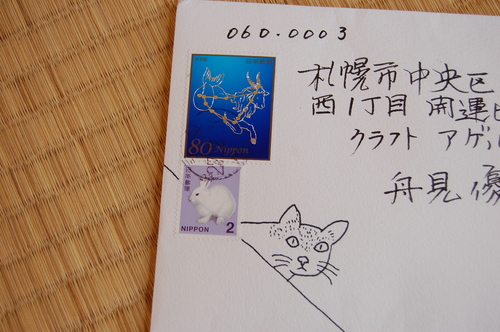 060.0003
札幌市中央区
西1丁目 開運ビ
クラフト アゲ
舟見 優
80 NIPPON
日本郵便
NIPPON 2